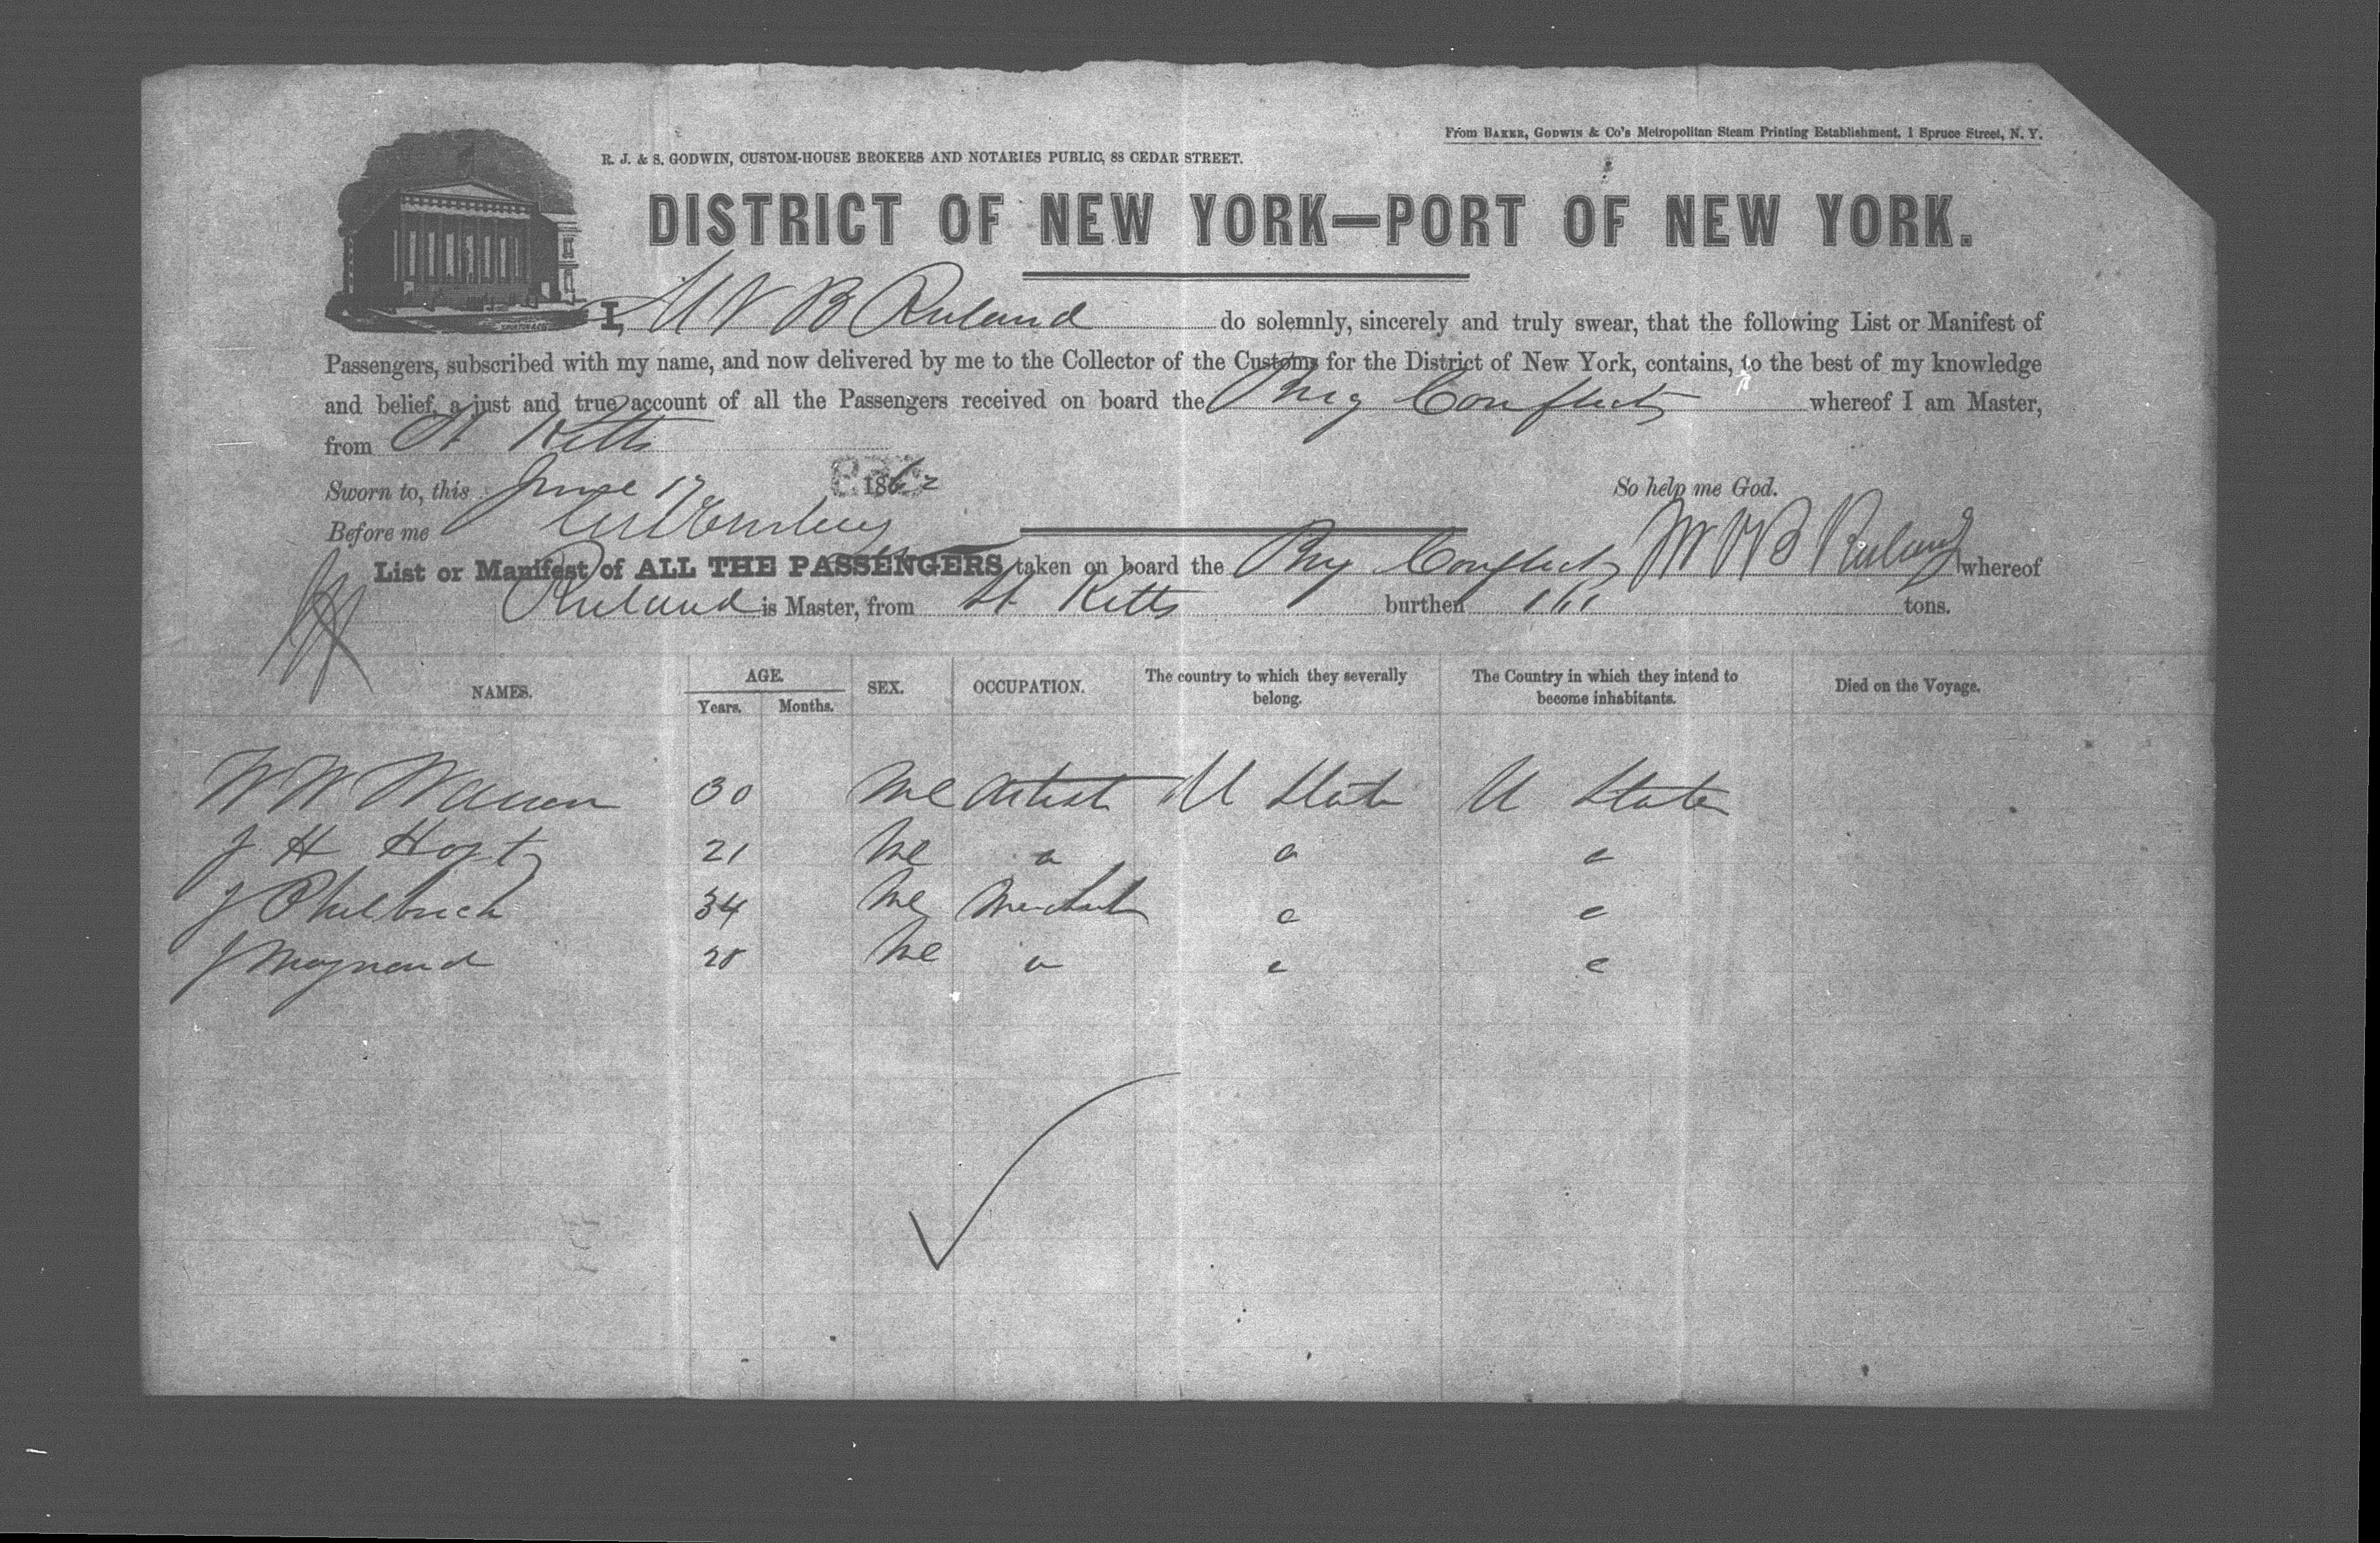 From BAKER, GODWIN & Co's Metropolitan Steam Printing Establishment, 1 Spruce Street, N. Y.
R. J. & S. GODWIN, CUSTOM-HOUSE BROKERS AND NOTARIES PUBLIC, 88 CEDAR STREET.
DISTRICT OF NEW YORK—PORT OF NEW YORK.
I, M V B Ruland do solemnly, sincerely and truly swear, that the following List or Manifest of
Passengers, subscribed with my name, and now delivered by me to the Collector of the Customs for the District of New York, contains, to the best of my knowledge
and belief, a just and true account of all the Passengers received on board the Brig Conflict whereof I am Master,
from St Kitts
Sworn to, this June 17 1862 So help me God.
Before me
List or Manifest of ALL THE PASSENGERS taken on board the Brig Conflict M V B Ruland whereof
Ruland is Master, from St Kitts burthen tons.
NAMES. AGE. Years. Months. SEX. OCCUPATION. The country to which they severally belong. The Country in which they intend to become inhabitants. Died on the Voyage.
W W 30 Me Artist U State U States
J H 21 Me " " "
J Philbrick 34 Me Merchant " "
J Maynard 28 Me " " "